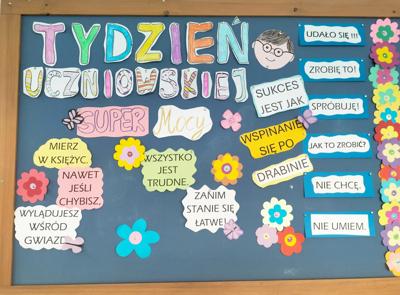 TYDZIEŃ
UCZNIOWSKIEJ
SUPER Mocy
MIERZ
W KSIĘŻYC,
NAWET
JEŚLI
CHYBISZ,
WYLĄDUJESZ
WŚRÓD
GWIAZD
WSZYSTKO
JEST
TRUDNE
ZANIM
STANIE SIĘ
ŁATWE!
SUKCES
JEST JAK
WSPINANIE
SIĘ PO
DRABINIE
UDAŁO SIĘ !!!
ZROBIĘ TO!
SPRÓBUJĘ!
JAK TO ZROBIĆ?
NIE CHCĘ.
NIE UMIEM.